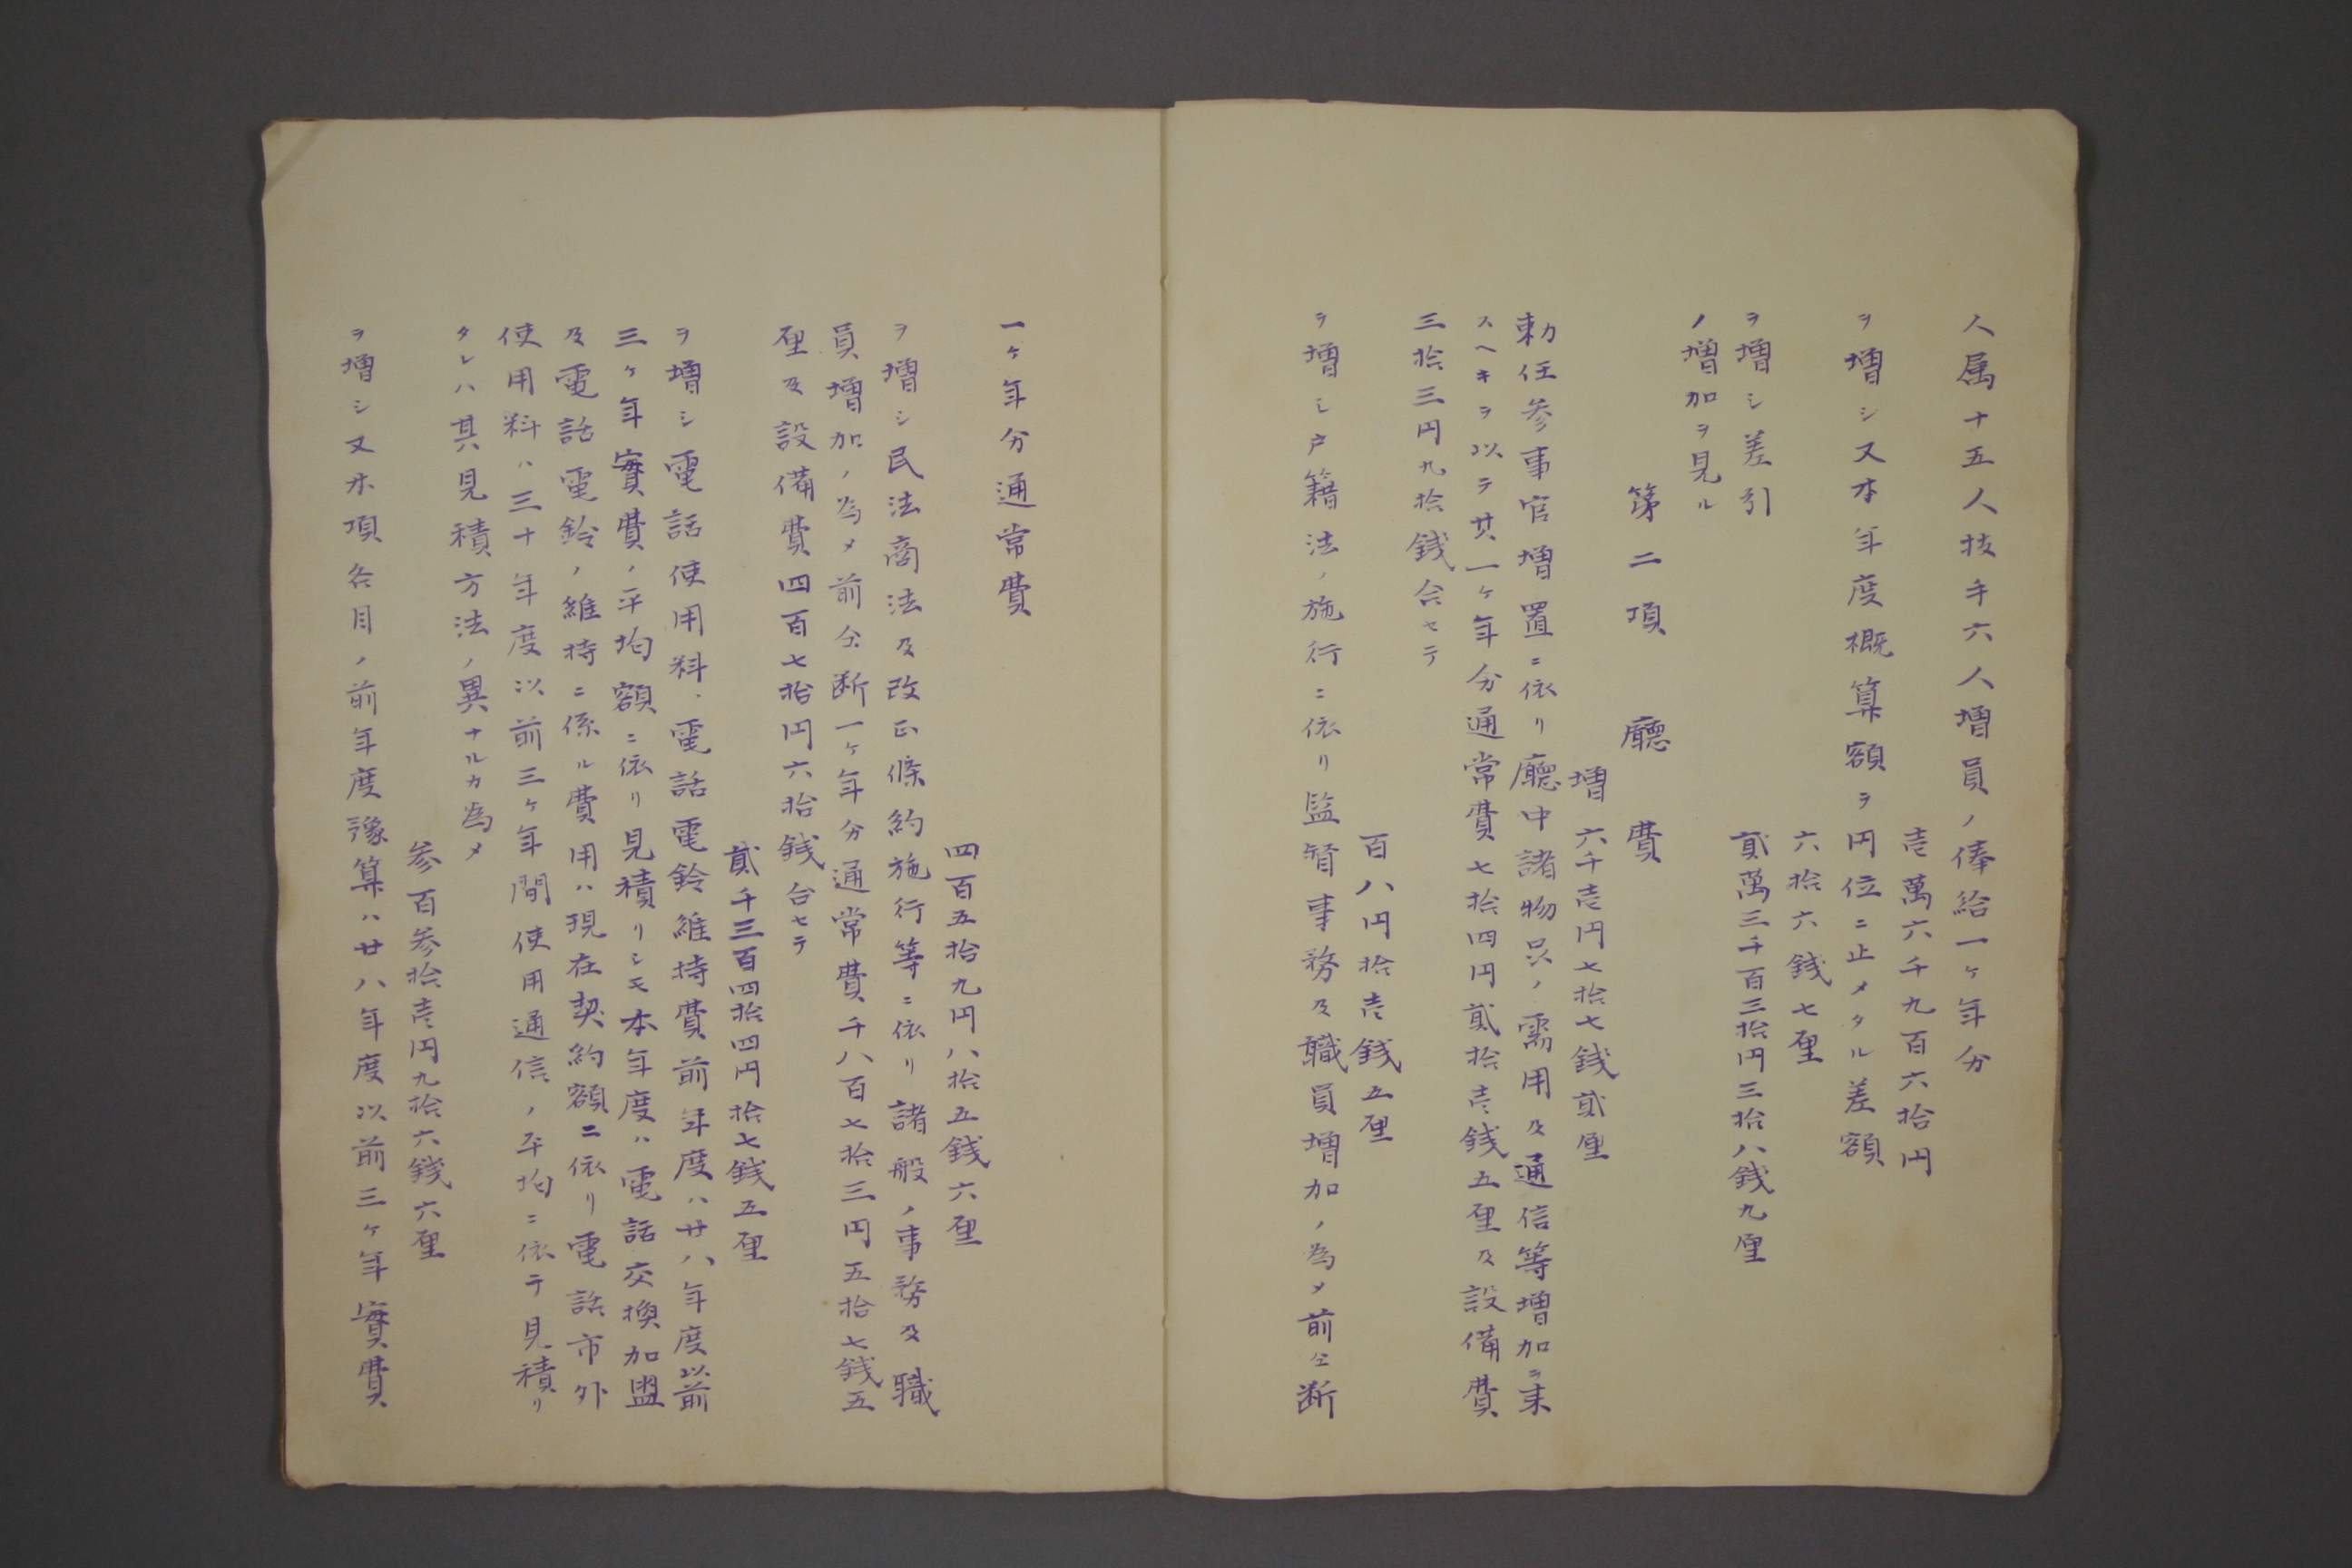 人属十五人技手六人増員ノ俸給一ヶ年分
壱萬六千九百六拾円
ヲ増シ又本年度概算額ヲ円位ニ止メタル差額
六拾六銭七厘
ヲ増シ差引
貳萬三千百三拾円三拾八銭九厘
ノ増加ヲ見ル
第二項 廳費
増 六千壱円七拾七銭貳厘
勅任参事官増置ニ依リ廳中諸物品ノ需用及通信等増加ヲ来
スヘキヲ以テ其一ヶ年分通常費七拾四円貳拾壱銭五厘及設備費
三拾三円九拾銭合セテ
百八円拾壱銭五厘
ヲ増シ戸籍法ノ施行ニ依リ監督事務及職員増加ノ為メ前仝断
一ヶ年分通常費
四百五拾九円八拾五銭六厘
ヲ増シ民法商法及改正條約施行等ニ依リ諸般ノ事務及職
員増加ノ為メ前仝断一ヶ年分通常費千八百七拾三円五拾七銭五
厘及設備費四百七拾円六拾銭合セテ
貳千三百四拾四円拾七銭五厘
ヲ増シ電話使用料、電話電鈴維持費前年度ハ廿八年度以前
三ヶ年實費ノ平均額ニ依リ見積リシモ本年度ハ電話交換加盟
及電話電鈴ノ維持ニ係ル費用ハ現在契約額ニ依リ電話市外
使用料ハ三十年度以前三ヶ年間使用通信ノ平均ニ依テ見積リ
タレハ其見積方法ノ異ナルカ為メ
参百参拾壱円九拾六銭六厘
ヲ増シ又本項各目ノ前年度豫算ハ廿八年度以前三ヶ年實費